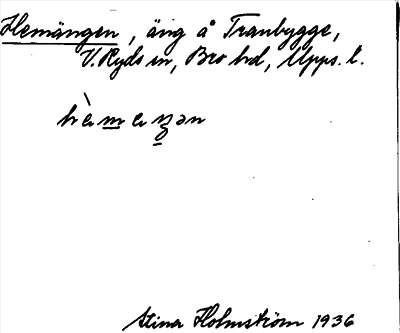 Hemängen, äng å Tranbygge,
V. Ryds sn, Bro hd, Upps. l.
Stina Holmström 1936